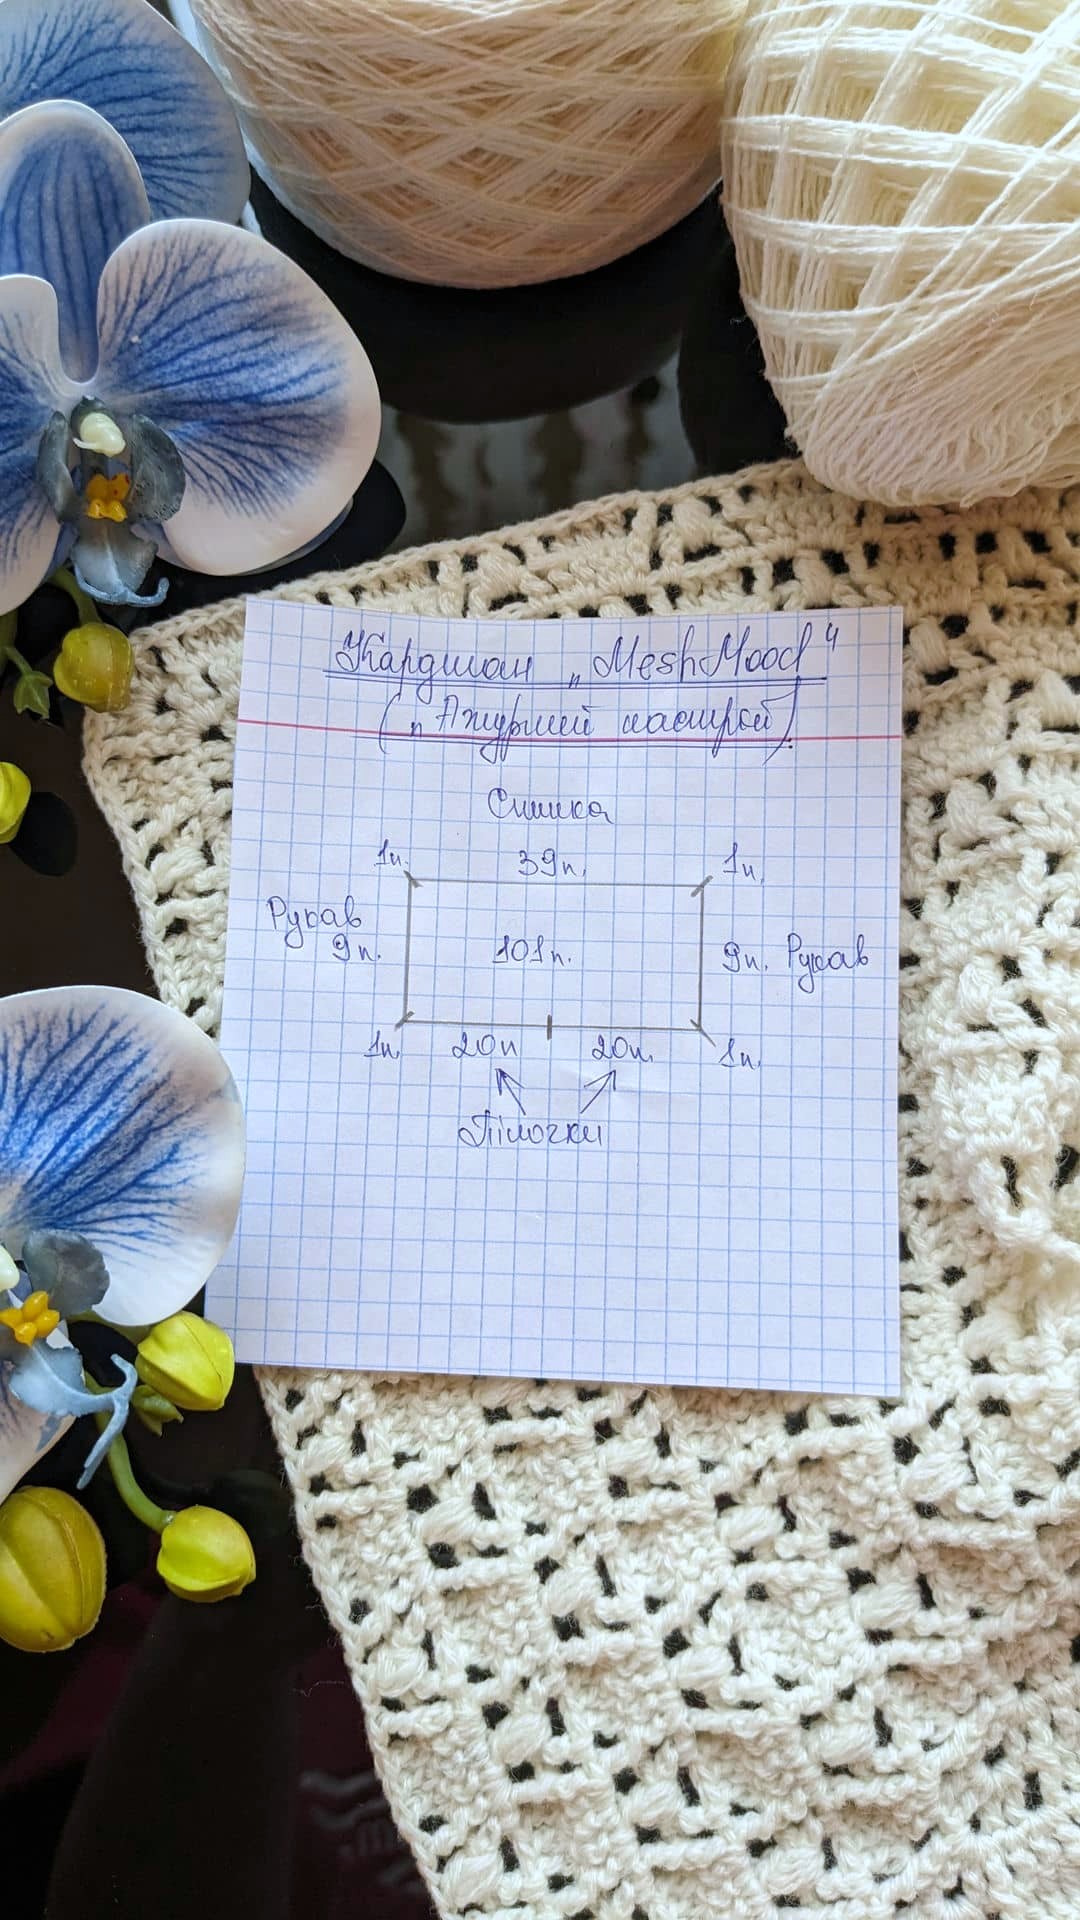 Кардиган „MeshMood“
(„Ажурний настрій)
Спинка
1п. 39п. 1п.
Рукав
9п. 101п. 9п. Рукав
1п. 20п 20п. 1п.
Пілочки